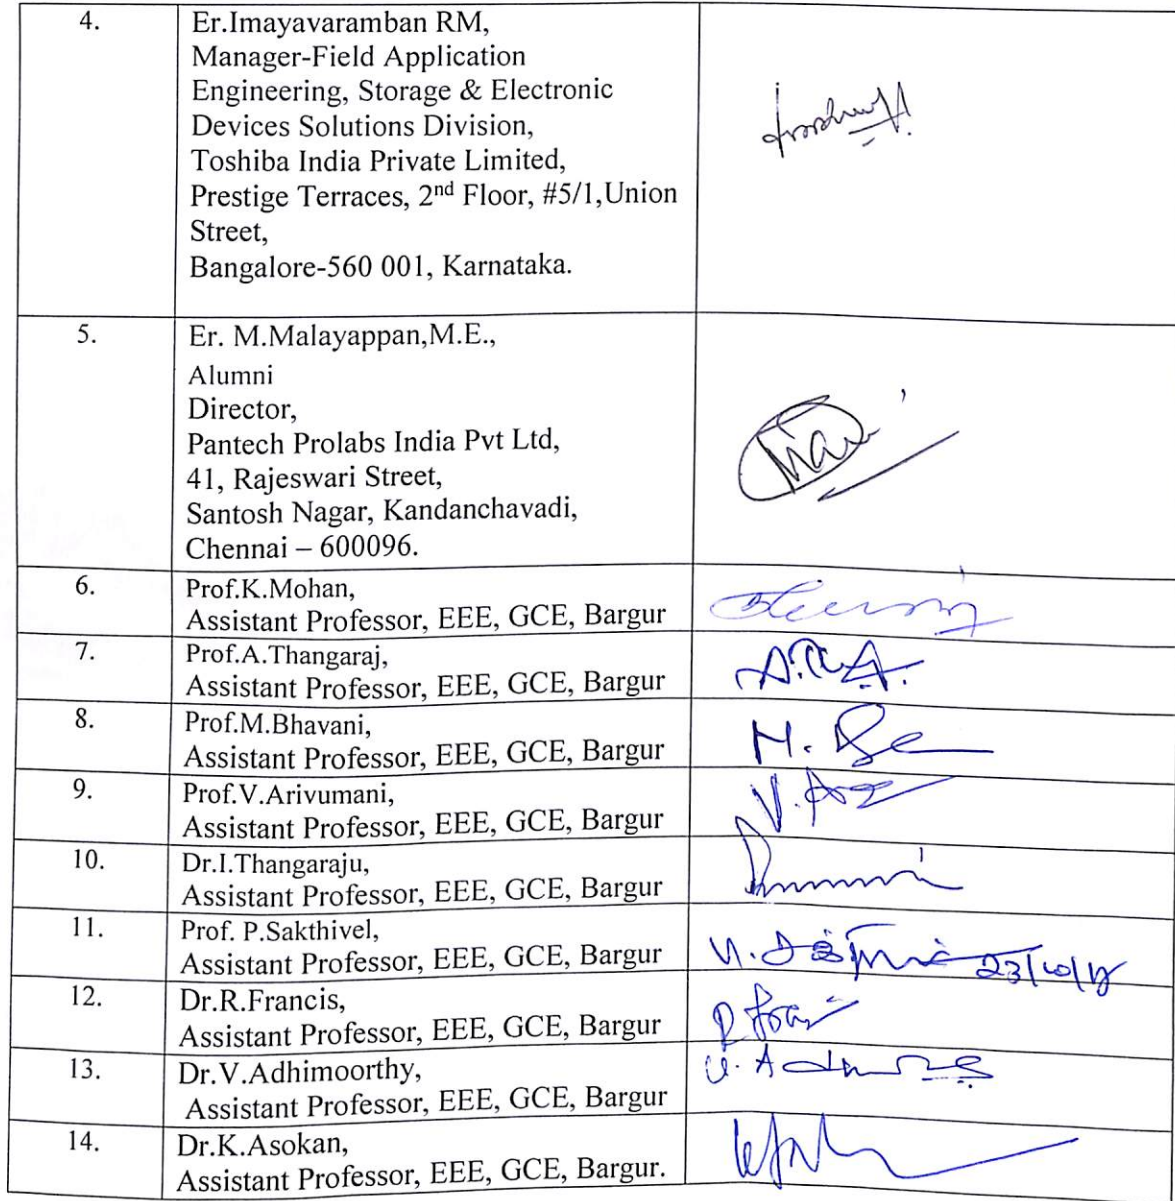 4.
Er.Imayavaramban RM,
Manager-Field Application
Engineering, Storage & Electronic
Devices Solutions Division,
Toshiba India Private Limited,
Prestige Terraces, 2nd Floor, #5/1,Union
Street,
Bangalore-560 001, Karnataka.
5.
Er. M.Malayappan,M.E.,
Alumni
Director,
Pantech Prolabs India Pvt Ltd,
41, Rajeswari Street,
Santosh Nagar, Kandanchavadi,
Chennai – 600096.
6.
Prof.K.Mohan,
Assistant Professor, EEE, GCE, Bargur
7.
Prof.A.Thangaraj,
Assistant Professor, EEE, GCE, Bargur
8.
Prof.M.Bhavani,
Assistant Professor, EEE, GCE, Bargur
9.
Prof.V.Arivumani,
Assistant Professor, EEE, GCE, Bargur
10.
Dr.I.Thangaraju,
Assistant Professor, EEE, GCE, Bargur
11.
Prof. P.Sakthivel,
Assistant Professor, EEE, GCE, Bargur
12.
Dr.R.Francis,
Assistant Professor, EEE, GCE, Bargur
13.
Dr.V.Adhimoorthy,
Assistant Professor, EEE, GCE, Bargur
14.
Dr.K.Asokan,
Assistant Professor, EEE, GCE, Bargur.